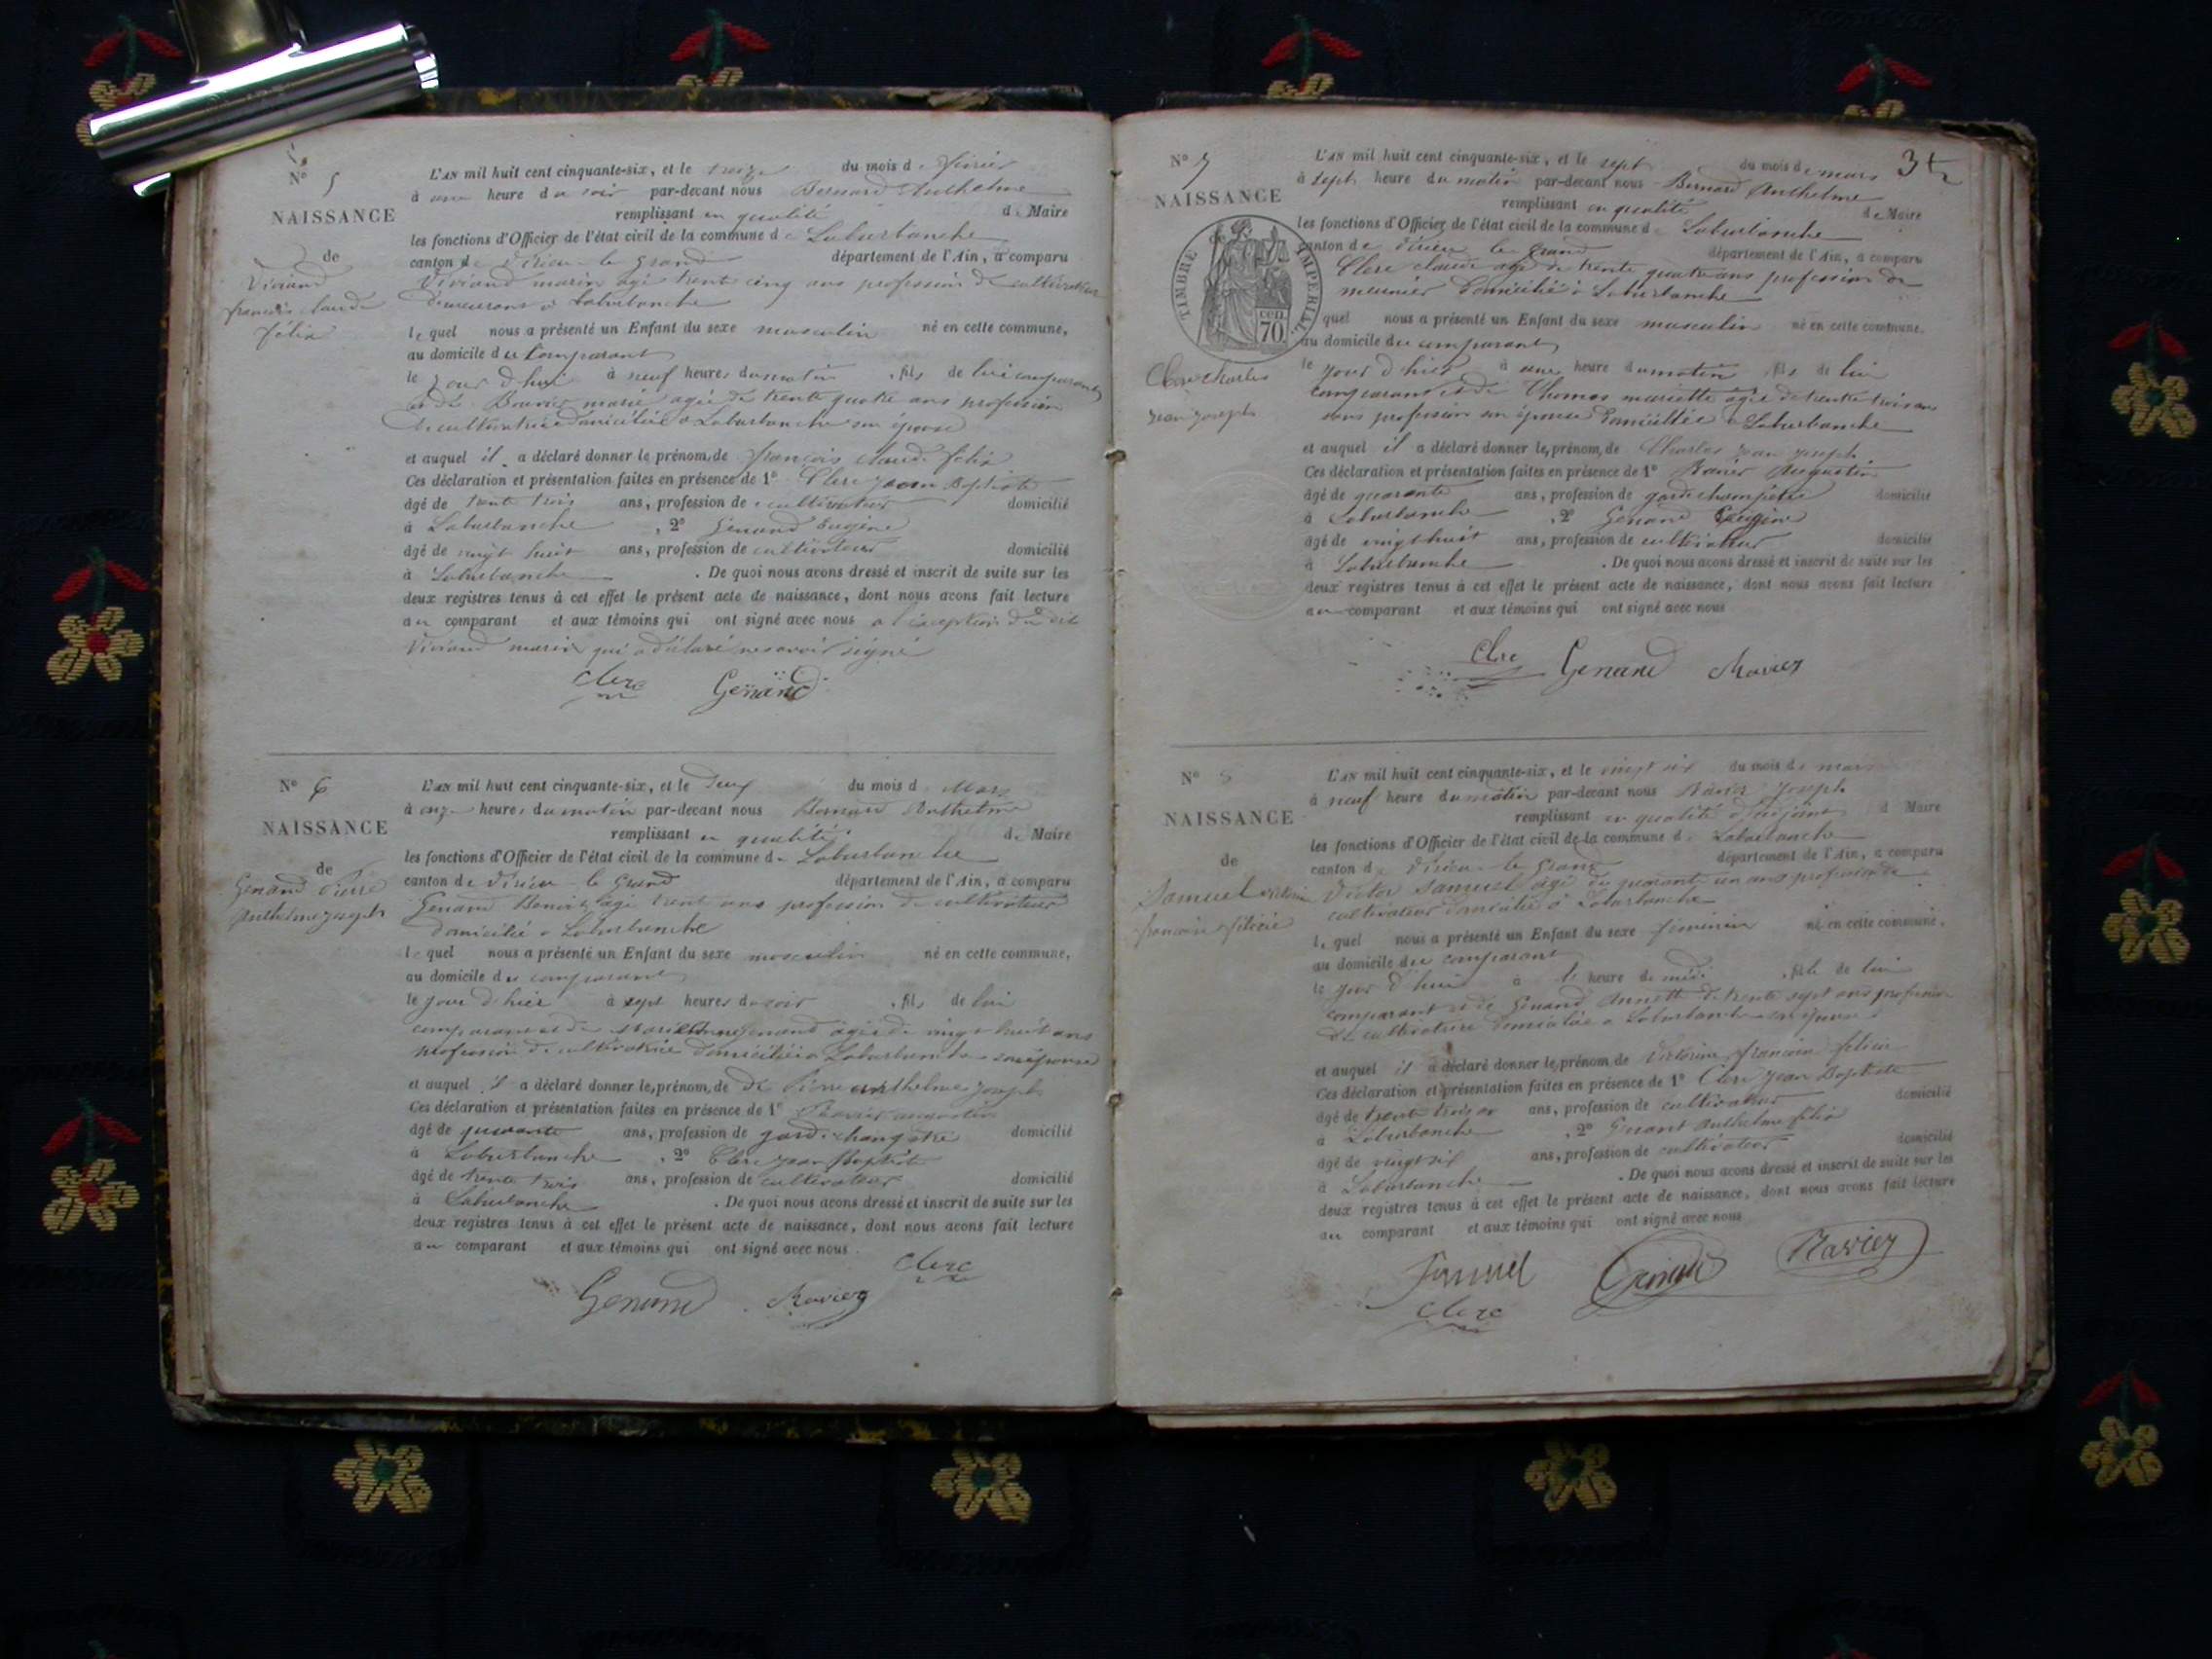 N° 5
NAISSANCE
de
Viviand
françois claude
félix
L'AN mil huit cent cinquante-six, et le treize du mois de février
à une heure du soir par-devant nous Bernard Anthelme
remplissant en qualité de Maire
les fonctions d'Officier de l'état civil de la commune de Laburbanche
canton de Virieu le grand département de l'Ain, a comparu
Viviand marin agé trente cinq ans profession de cultivateur
demeurant à Laburbanche
lequel nous a présenté un Enfant du sexe masculin né en cette commune,
au domicile du comparant
le jour d'hui à neuf heures du matin, fils de lui comparant
et de Bouvier marie agée de trente quatre ans profession
de cultivatrice domiciliée à Laburbanche son épouse
et auquel il a déclaré donner les prénom de françois claude félix
Ces déclaration et présentation faites en présence de 1° Clerc jean Baptiste
âgé de trente trois ans, profession de cultivateur domicilié
à Laburbanche, 2° Genand Eugène
âgé de vingt huit ans, profession de cultivateur domicilié
à Laburbanche. De quoi nous avons dressé et inscrit de suite sur les
deux registres tenus à cet effet le présent acte de naissance, dont nous avons fait lecture
au comparant et aux témoins qui ont signé avec nous a l'exception du dit
Viviand marin qui a déclaré ne savoir signé
Clerc Genand
N° 6
NAISSANCE
de
Genand Pierre
Anthelme joseph
L'AN mil huit cent cinquante-six, et le deux du mois de Mars
à onze heures du matin par-devant nous Bernard Anthelme
remplissant en qualité de Maire
les fonctions d'Officier de l'état civil de la commune de Laburbanche
canton de Virieu le Grand département de l'Ain, a comparu
Genand Benoit agé trente ans profession de cultivateur
domicilié à Laburbanche
lequel nous a présenté un Enfant du sexe masculin né en cette commune,
au domicile du comparant
le jour d'hier à sept heures du soir, fils de lui
comparant et de Genand agée de vingt huit ans
profession de cultivatrice domiciliée à Laburbanche son épouse
et auquel il a déclaré donner les prénom de de Pierre anthelme joseph
Ces déclaration et présentation faites en présence de 1° Ravier augustin
âgé de quarante ans, profession de garde champêtre domicilié
à Laburbanche, 2° Clerc jean Baptiste
âgé de trente trois ans, profession de cultivateur domicilié
à Laburbanche. De quoi nous avons dressé et inscrit de suite sur les
deux registres tenus à cet effet le présent acte de naissance, dont nous avons fait lecture
au comparant et aux témoins qui ont signé avec nous.
Clerc
Genand Ravier
35
N° 7
NAISSANCE
de
TIMBRE IMPERIAL
cen. 70
Clerc Charles
jean joseph
L'AN mil huit cent cinquante-six, et le sept du mois de mars
à sept heure du matin par-devant nous Bernard Anthelme
remplissant en qualité de Maire
les fonctions d'Officier de l'état civil de la commune de Laburbanche
canton de Virieu le Grand département de l'Ain, a comparu
Clerc claude agé de trente quatre ans profession de
meunier domicilié à Laburbanche
quel nous a présenté un Enfant du sexe masculin né en cette commune,
au domicile du comparant
le jour d'hier à une heure du matin, fils de lui
comparant et de Thomas mariette agée de trente trois ans
sans profession son épouse domiciliée à Laburbanche
et auquel il a déclaré donner les prénom de Charles jean joseph
Ces déclaration et présentation faites en présence de 1° Ravier Augustin
âgé de quarante ans, profession de garde champêtre domicilié
à Laburbanche, 2° Genand Eugène
âgé de vingt huit ans, profession de cultivateur domicilié
à Laburbanche. De quoi nous avons dressé et inscrit de suite sur les
deux registres tenus à cet effet le présent acte de naissance, dont nous avons fait lecture
au comparant et aux témoins qui ont signé avec nous
Clerc Genand Ravier
N° 8
NAISSANCE
de
Samuel victorine
françoise félicie
L'AN mil huit cent cinquante-six, et le vingt six du mois de mars
à neuf heure du matin par-devant nous Ravier Joseph
remplissant en qualité d'adjoint d Maire
les fonctions d'Officier de l'état civil de la commune de Laburbanche
canton de Virieu le Grand département de l'Ain, a comparu
Victor Samuel agé de quarante un ans profession de
cultivateur domicilié à Laburbanche
lequel nous a présenté un Enfant du sexe féminin né en cette commune,
au domicile du comparant
le jour d'hui à heure de midi, fille de lui
comparant et de Genand Annette de trente sept ans profession
de cultivatrice domiciliée à Laburbanche son épouse
et auquel il a déclaré donner les prénom de victorine françoise félicie
Ces déclaration et présentation faites en présence de 1° Clerc jean Baptiste
âgé de trente trois ans, profession de cultivateur domicilié
à Laburbanche, 2° Genant anthelme félix
âgé de vingt six ans, profession de cultivateur domicilié
à Laburbanche. De quoi nous avons dressé et inscrit de suite sur les
deux registres tenus à cet effet le présent acte de naissance, dont nous avons fait lecture
au comparant et aux témoins qui ont signé avec nous
Samuel Ravier
Clerc